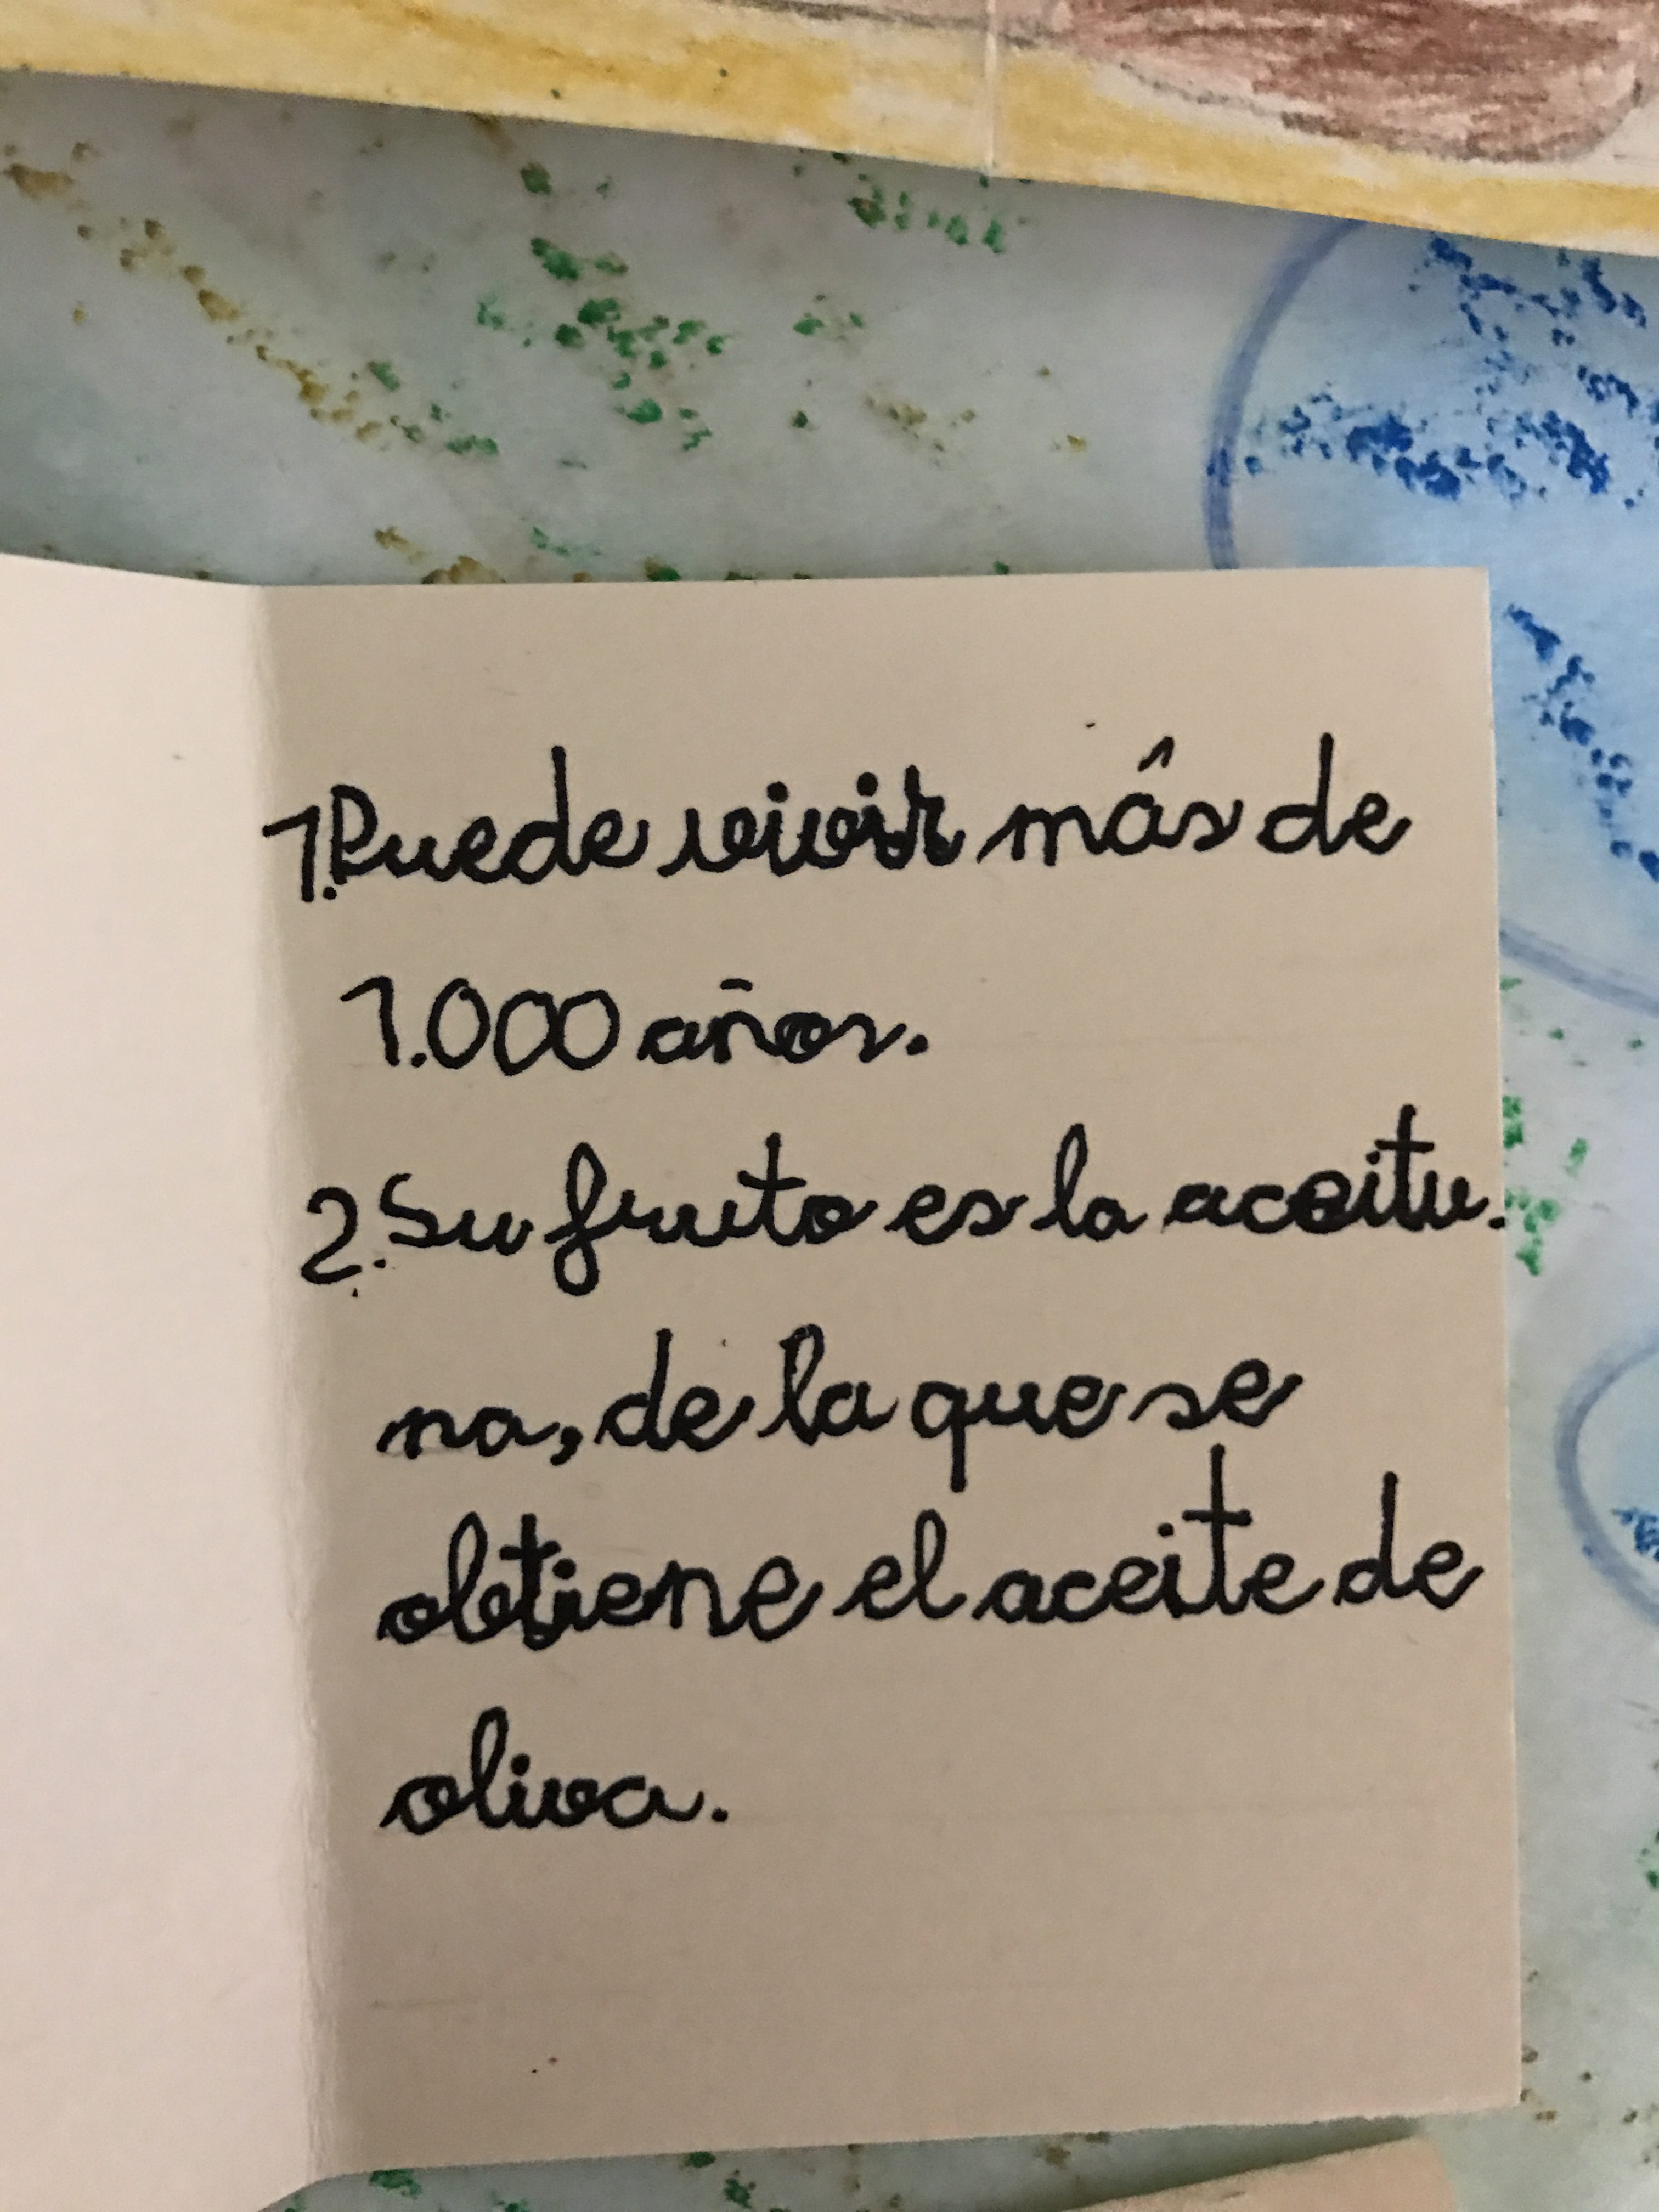 1.Puede vivir más de
1.000 años.
2.Su fruto es la aceitu-
na, de la que se
obtiene el aceite de
oliva.